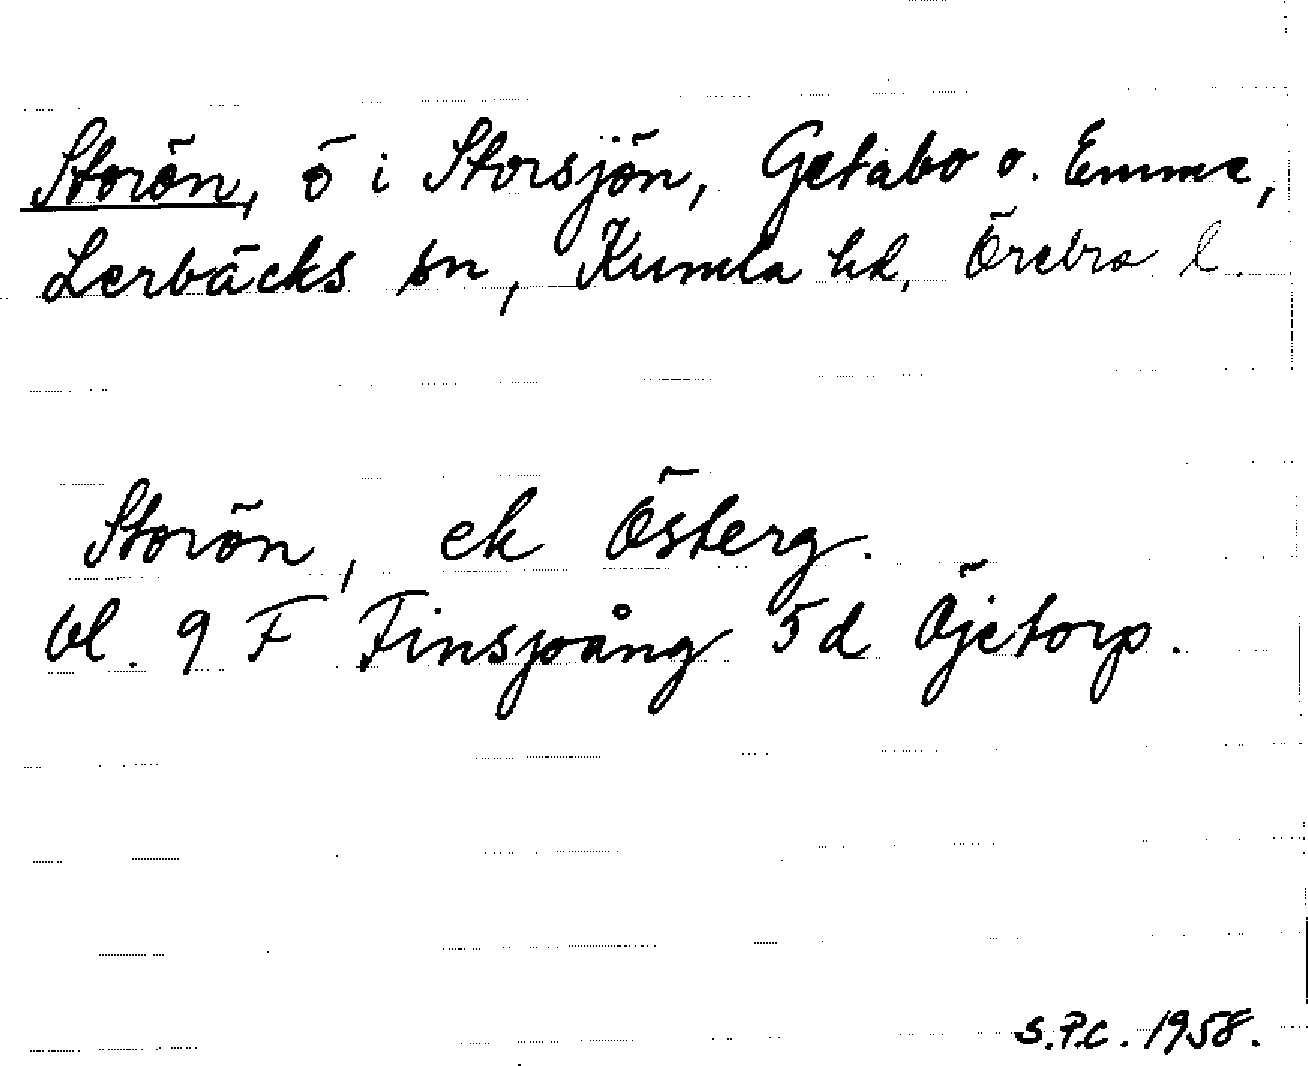 Storön, ö i Storsjön, Getabo o. Emme,
Lerbäcks sn, Kumla hd, Örebro l.
Storön, ek Österg.
bl. 9 F Finspång 5d Öjetorp.
S.P.C. 1958.